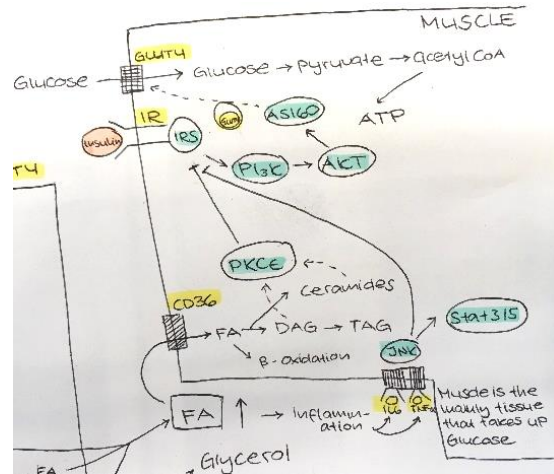 MUSCLE
GLUT4
Glucose → Glucose → Pyruvate → acetyl CoA
ATP
IR
Insulin
IRS
Glut4
AS160
PI3K → AKT
T4
PKCE
Ceramides
CD36
FA → DAG → TAG
β-Oxidation
JNK
Stat315
FA ↑ → Inflammation
IL6
TNFα
Muscle is the
mainly tissue
that takes up
Glucose
FA
Glycerol